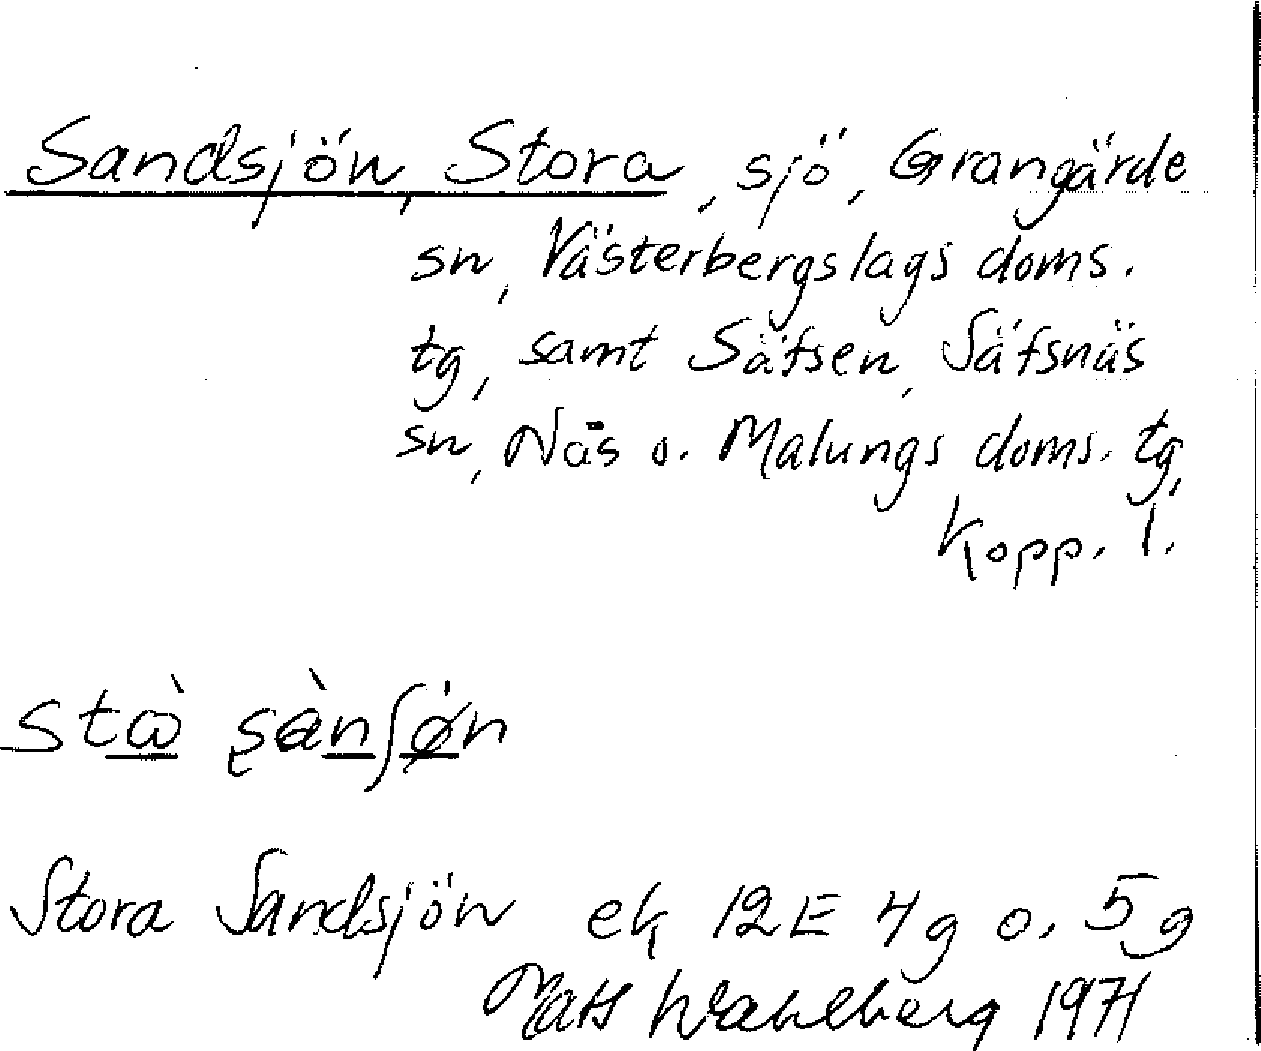 Sandsjön, Stora, sjö, Grangärde
sn, Västerbergslags doms.
tg, samt Säfsen, Säfsnäs
sn, Näs o. Malungs doms. tg,
Kopp. l.
Stora Sandsjön ek 12E 4g o. 5g
Mats Wahlberg 1971